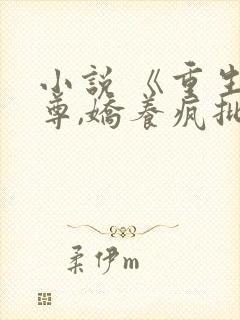 小說《重生
尊,嬌養瘋批
柔伊m